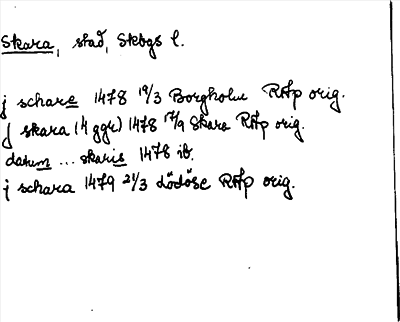 Skara, stad, Skbgs l.
j schare 1478 19/3 Borgholm RAp orig.
J skara (4 ggr) 1478 17/9 Skara RAp orig.
datum ... skaris 1478 ib.
j schara 1479 21/3 Lödöse RAp orig.